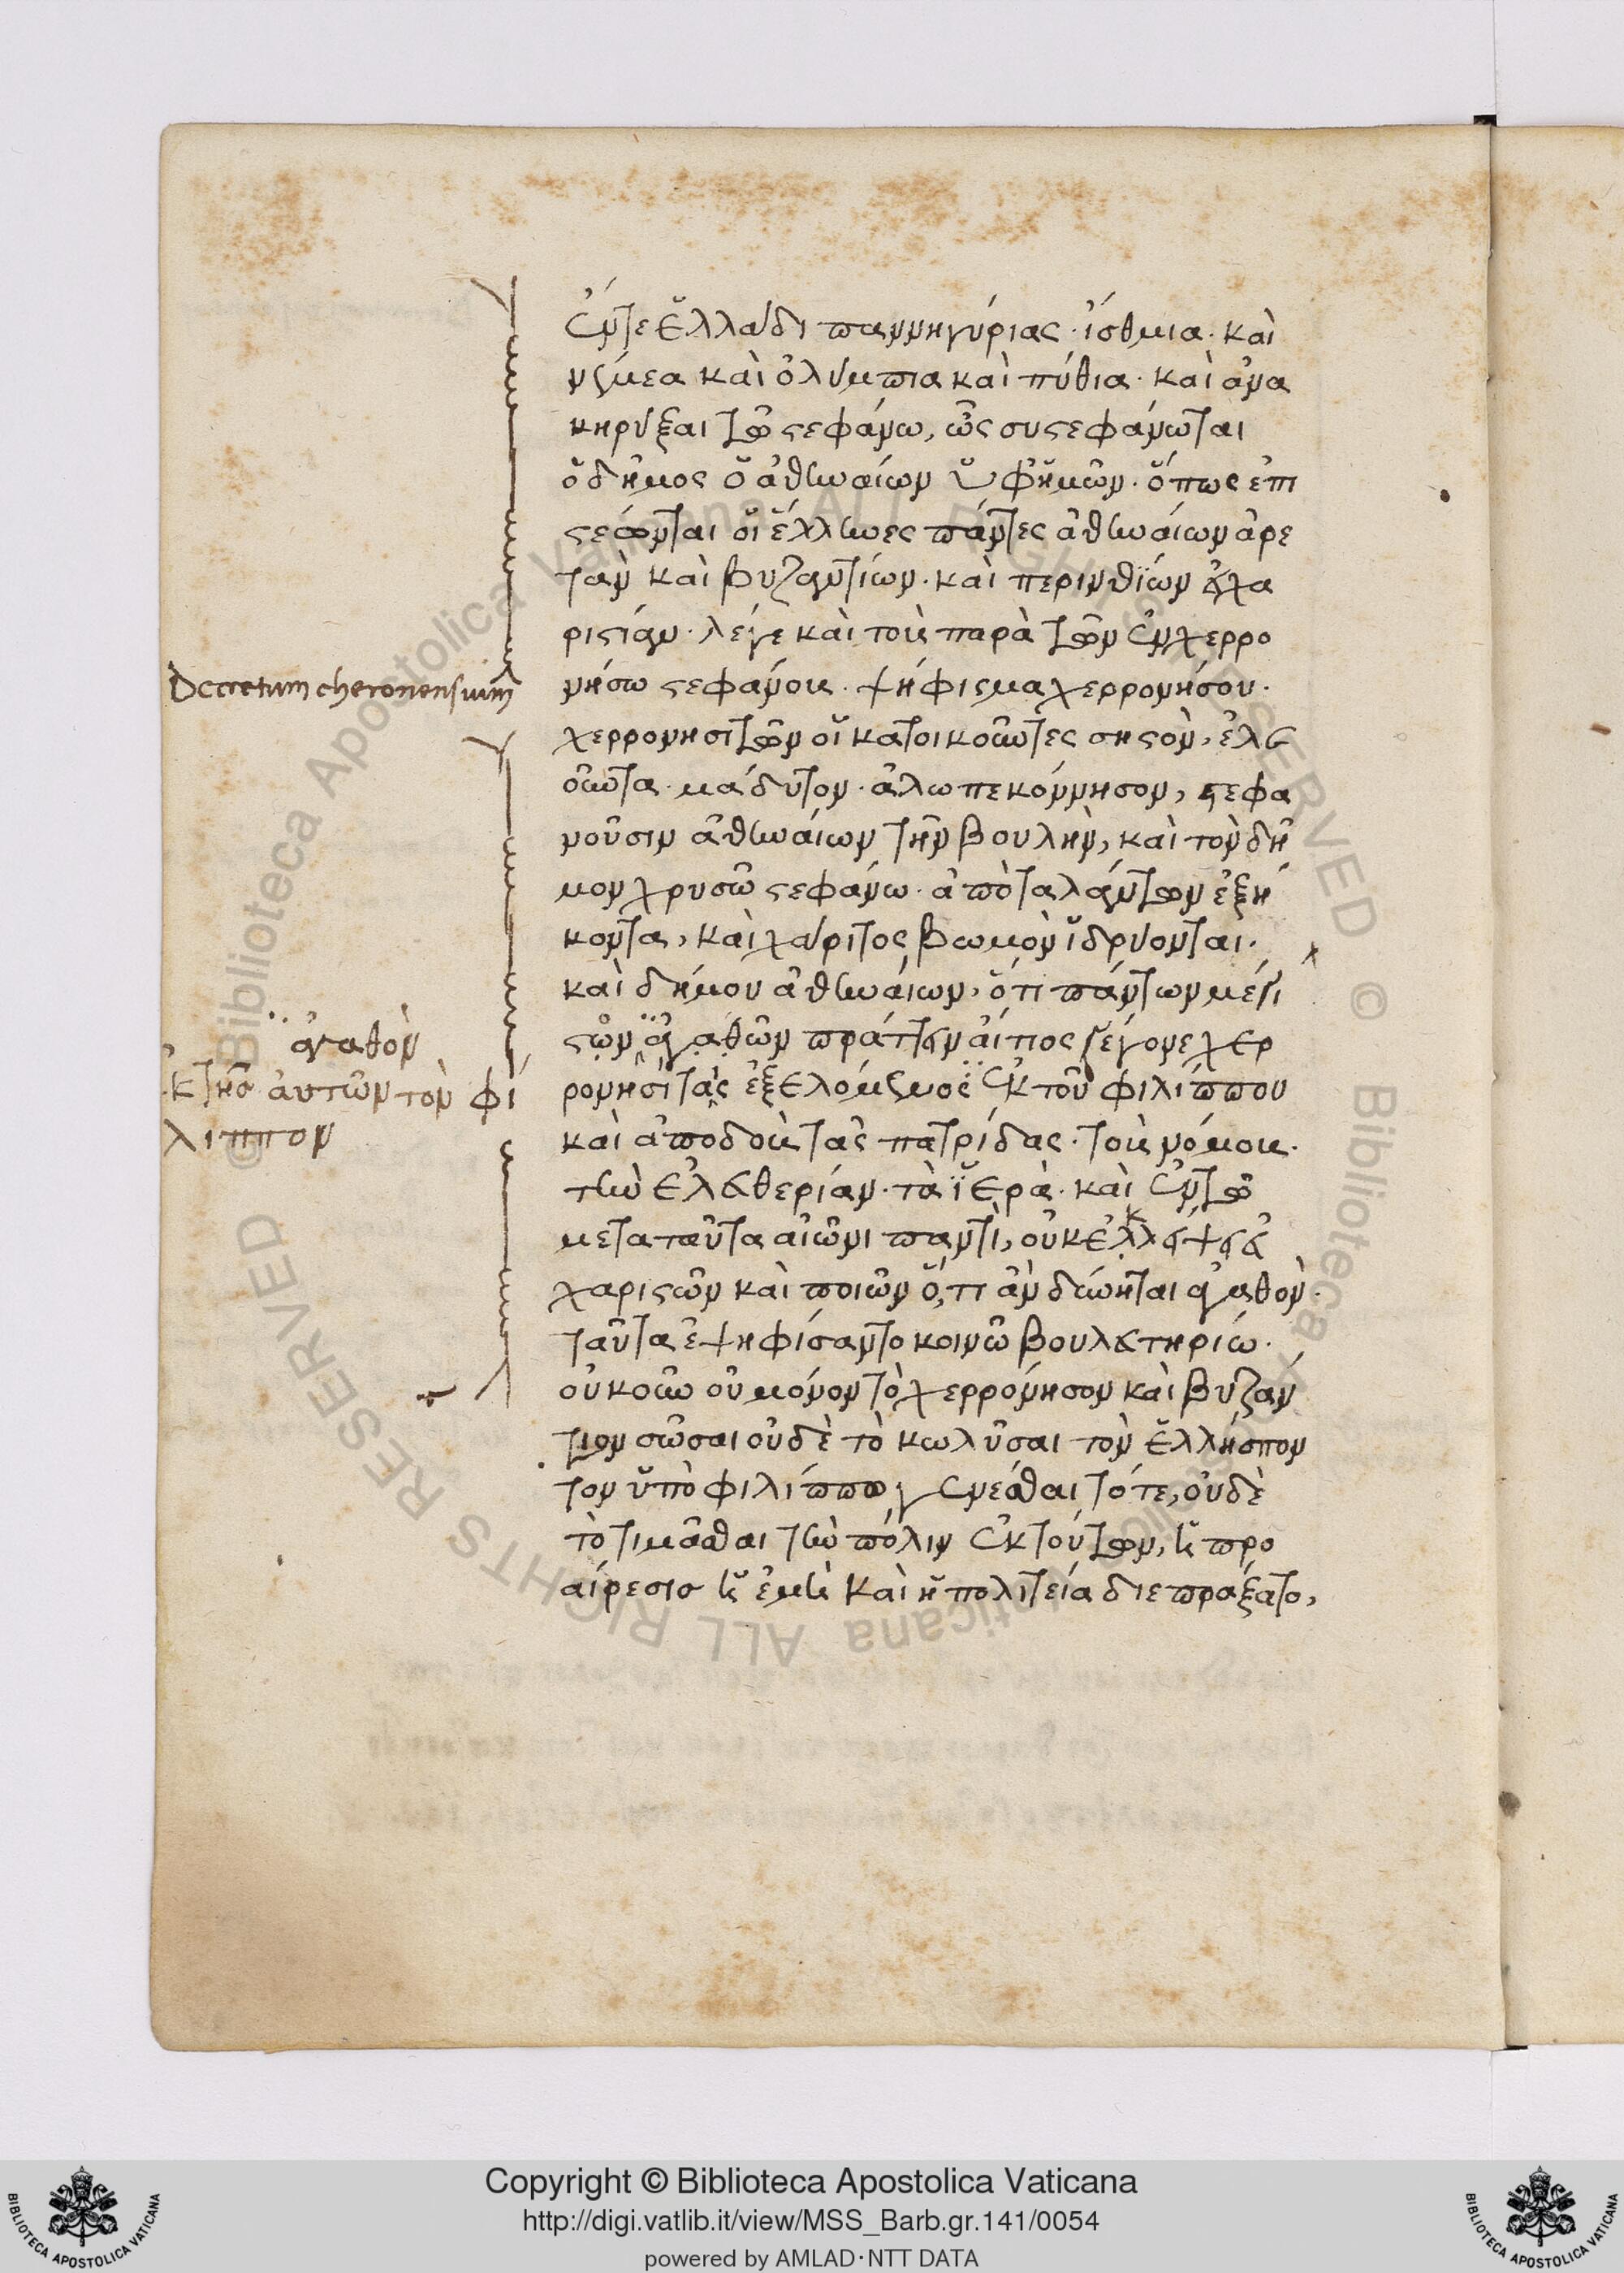 ἐν τε Ἑλλάδι παννηγύριας· ἴσθμια· καὶ
νέμεα καὶ ὀλύμπια καὶ πύθια· καὶ ἀνα
κηρύξαι τῷ στεφάνω, ὡς συστεφάνωται
ὁ δῆμος ὁ ἀθηναίων ὑφ' ἡμῶν· ὅπως ἐπι
στέωνται οἱ ἕλληνες πάντες ἀθηναίων ἀρε
τὰν καὶ βυζαντίων· καὶ περινθίων εὐχα
ριστίαν· λέγε καὶ τοὺς παρὰ τῶν ἐν χερρο
νήσω στεφάνους· ψήφισμα χερρονήσου·
Decretum cheronensium
χερρονησιτῶν οἱ κατοικοῦντες σηστὸν, ἐλε
οῦντα· μάδυτον· ἀλωπεκόννησον, στεφα
νοῦσιν ἀθηναίων τὴν βουλὴν, καὶ τὸν δῆ
μον χρυσῶ στεφάνω· ἀπὸ ταλάντων ἑξή
κοντα, καὶ χάριτος βωμὸν ἱδρύονται·
καὶ δήμου ἀθηναίων, ὅτι πάντων μεγί
στων ἀγαθῶν παραίτιος γέγονε χερ
ρονησίταις ἐξελόμενος ἐκ τοῦ φιλίππου
ἀγαθὸν
ἐκ τῆς αὐτῶν τὸν φί
λιππον
καὶ ἀποδοὺς τὰς πατρίδας· τοὺς νόμους·
τὴν ἐλευθερίαν· τὰ ἱερὰ· καὶ ἐν τῷ
μετὰ ταῦτα αἰῶνι παντὶ, οὐκ ἐλλείψει εὐ
χαριστῶν καὶ ποιῶν ὅ,τι ἂν δύνηται ἀγαθὸν·
ταῦτα ἐψηφίσαντο κοινῶ βουλευτηρίω·
οὐκοῦν οὐ μόνον τὸ χερρόνησον καὶ βυζάν
τιον σῶσαι οὐδὲ τὸ κωλῦσαι τὸν ἑλλήσπον
τον ὑπὸ φιλίππω γενέσθαι τότε, οὐδὲ
τὸ τιμᾶσθαι τὴν πόλιν ἐκ τούτων, ἡ προ
αίρεσισ ἡ ἐμὴ καὶ ἡ πολιτεία διεπράξατο,
Copyright © Biblioteca Apostolica Vaticana
http://digi.vatlib.it/view/MSS_Barb.gr.141/0054
powered by AMLAD·NTT DATA
BIBLIOTECA APOSTOLICA VATICANA
BIBLIOTECA APOSTOLICA VATICANA
© Biblioteca Apostolica Vaticana ALL RIGHTS RESERVED
© Biblioteca Apostolica Vaticana ALL RIGHTS RESERVED